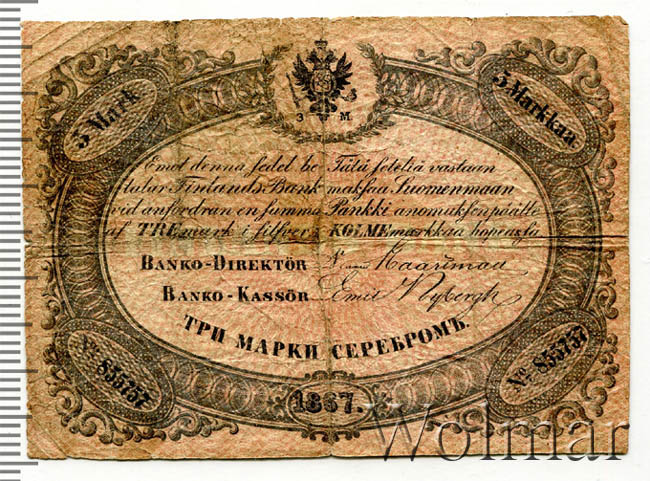 3 Mark
3 Markkaa
3 M.
Emot denna sedel be
talar Finlands Bank
vid anfordran en summa
af TRE mark i silfver.
Tätä seteliä vastaan
maksaa Suomenmaan
Pankki anomuksen päälle
KOLME markkaa hopeassa
BANKO-DIREKTÖR
BANKO-KASSÖR Emil Nybergh
ТРИ МАРКИ СЕРЕБРОМЪ.
No. 855757
No. 855757
1867.
Wolmar